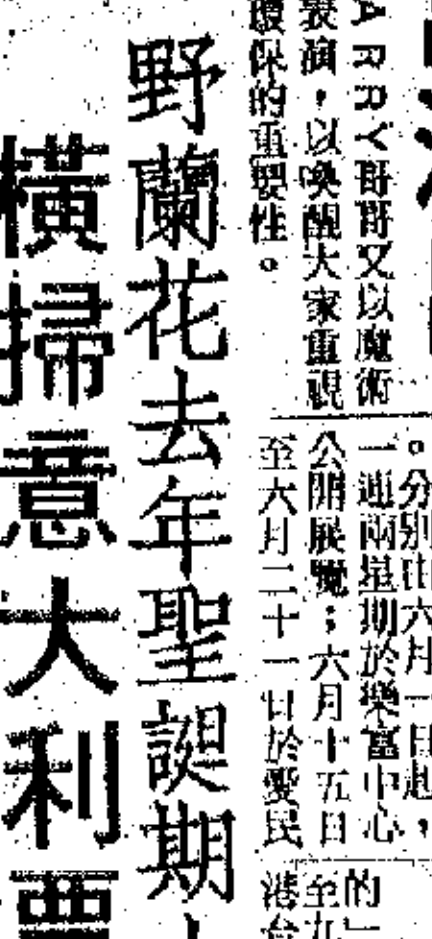 ARRY哥哥又以魔術
表演，以喚醒大家重視
環保的重要性。
。分別由六月一日起，
一連兩星期於樂富中心
公開展覽；六月十五日
至六月二十一日於愛民
的一
至九
港台
野蘭花去年聖誕期
橫掃意大利票